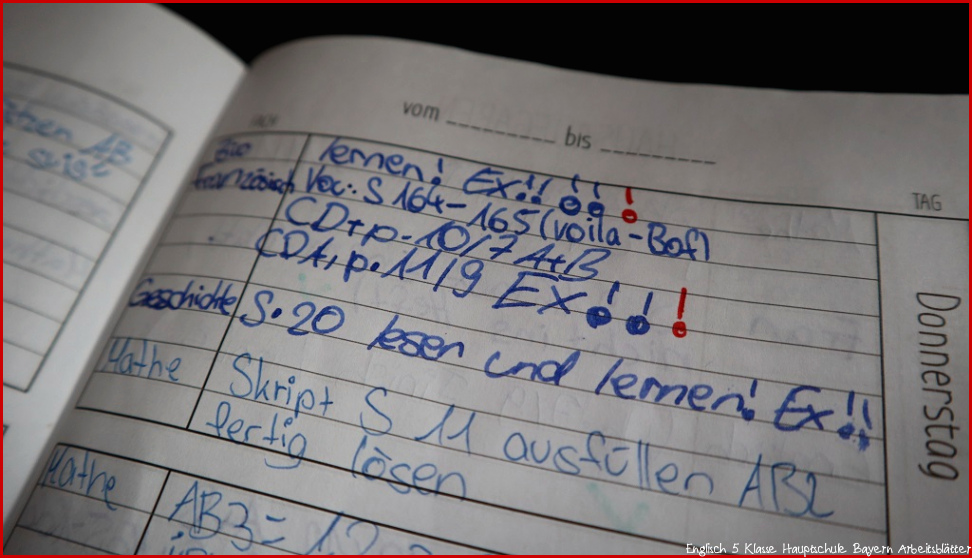 vom bis
FACH
TAG
Bio lernen! Ex!! !! !
Französisch Voc: S 164-165 (voila-Bof)
CD+p-10/7 A+B
CD1, p.11/9 Ex!!!
Geschichte S.20 lesen und lernen! Ex!!
Mathe Skript S 11 ausfüllen AB2
fertig lösen
Donnerstag
Mathe AB3= 1,2
AB
Englisch 5 Klasse Hauptschule Bayern Arbeitsblätter